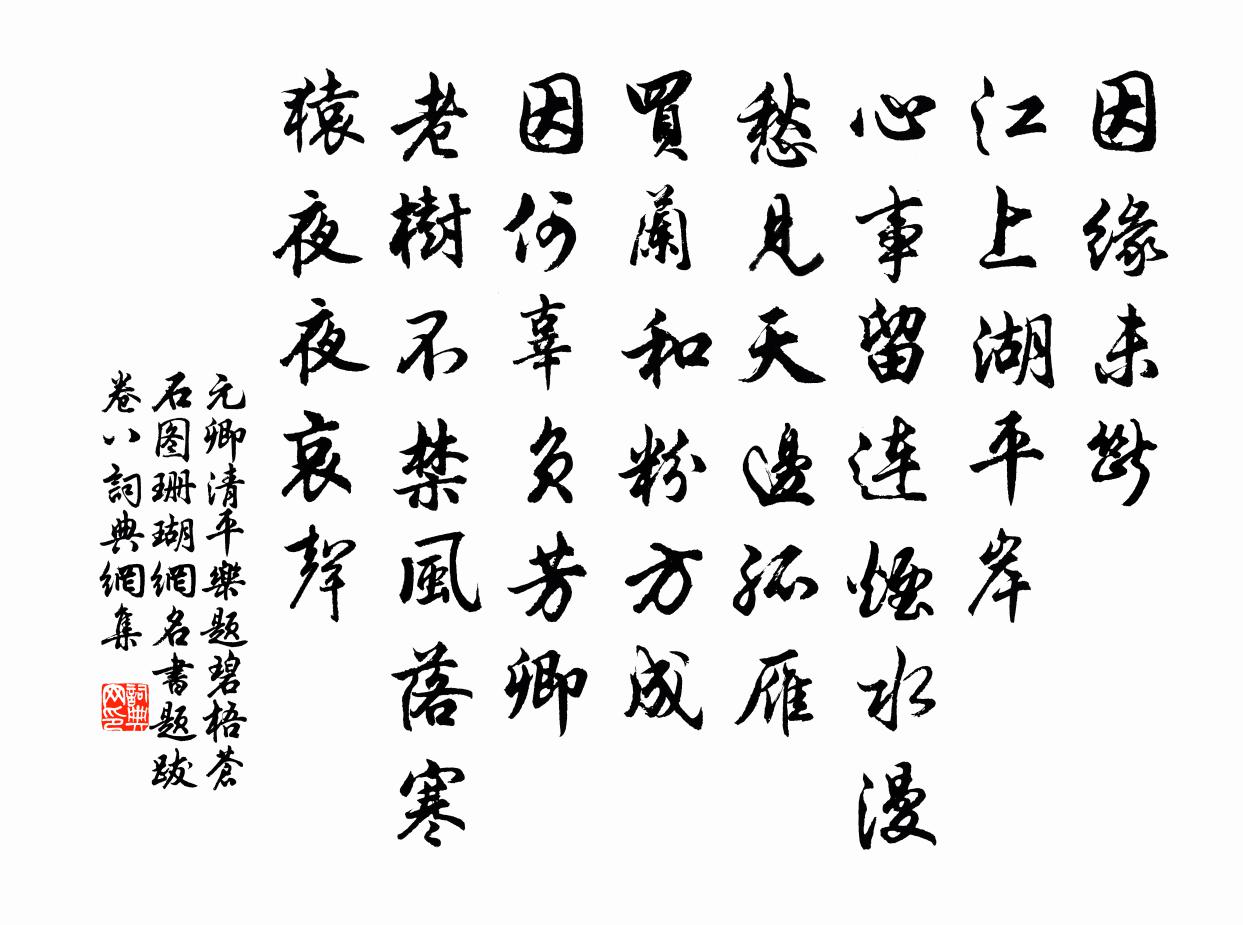 因緣未斷
江上湖平岸
心事留連煙水漫
愁見天邊孤雁
買蘭和粉方成
因何辜負芳卿
老樹不禁風落寒
猿夜夜哀聲
元卿清平樂題碧梧蒼
石图珊瑚網名書題跋
卷八詞典網集
詞典
网印